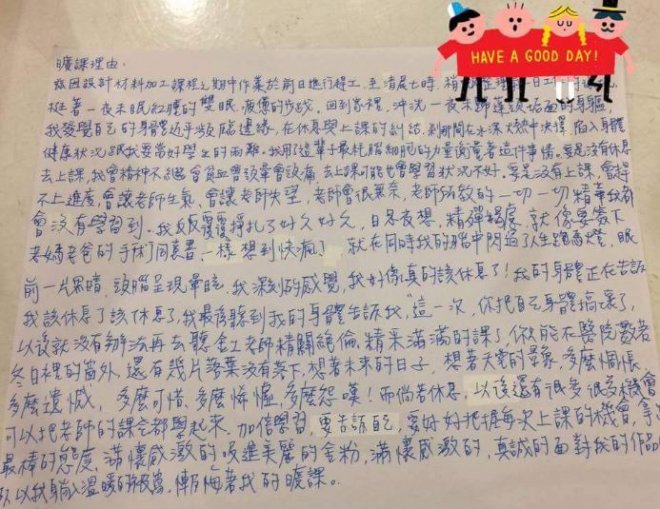 HAVE A GOOD DAY!
曠課理由:
茲因設計材料加工課程之期中作業於前日進行趕工,至清晨七時,稍
挺著一夜未眠紅腫的雙眼,疲憊的步伐,回到家裡,沖洗一夜未歸蓬頭垢面的身軀
我發覺自己的身體近乎敗壞邊緣,在休息與上課的糾結,剎那間在水深火熱中決擇,陷入身體
健康狀況跟我要當好學生的兩難。我用了這輩子最耗腦細胞的力量衡量著這件事情。要是沒有休息
去上課,我會精神不濟會貧血會頭暈會頭痛,去上課可能也會學習狀況不好,要是沒有上課,會跟
不上進度,會讓老師生氣,會讓老師失望,老師會很累,老師所教的一切一切精華我都
會沒有學習到。我反反覆覆掙扎了好久好久,日思夜想,精殫竭慮,就像要簽下
老媽老爸的手術同意書一樣想到快瘋,就在同時我的腦中閃過了人生跑馬燈,眼
前一片黑暗,頭腦呈現暈眩,我深刻的感覺,我好像真的該休息了!我的身體正在告訴
我該休息了該休息了,我最後聽到我的身體告訴我,這一次,你把自己身體搞壞了,
以後就沒有辦法再去聽金工老師精闢絕倫、精采滿滿的課了,你只能在醫院數著
冬日裡的窗外,還有幾片落葉沒有落下,想著未來的日子,想著天堂的景象,多麼惆悵,
多麼遺憾,多麼可惜,多麼憔悴,多麼怨嘆!而倘若休息,以後還有很多很多次機會
可以把老師的課全都學起來,加倍學習,要告訴自己,要好好把握每次上課的機會,拿
最棒的態度,滿懷感激的吸進美麗的金粉,滿懷感激的,真誠的面對我的作品
所以我躺入溫暖的被窩,懺悔著我的曠課。